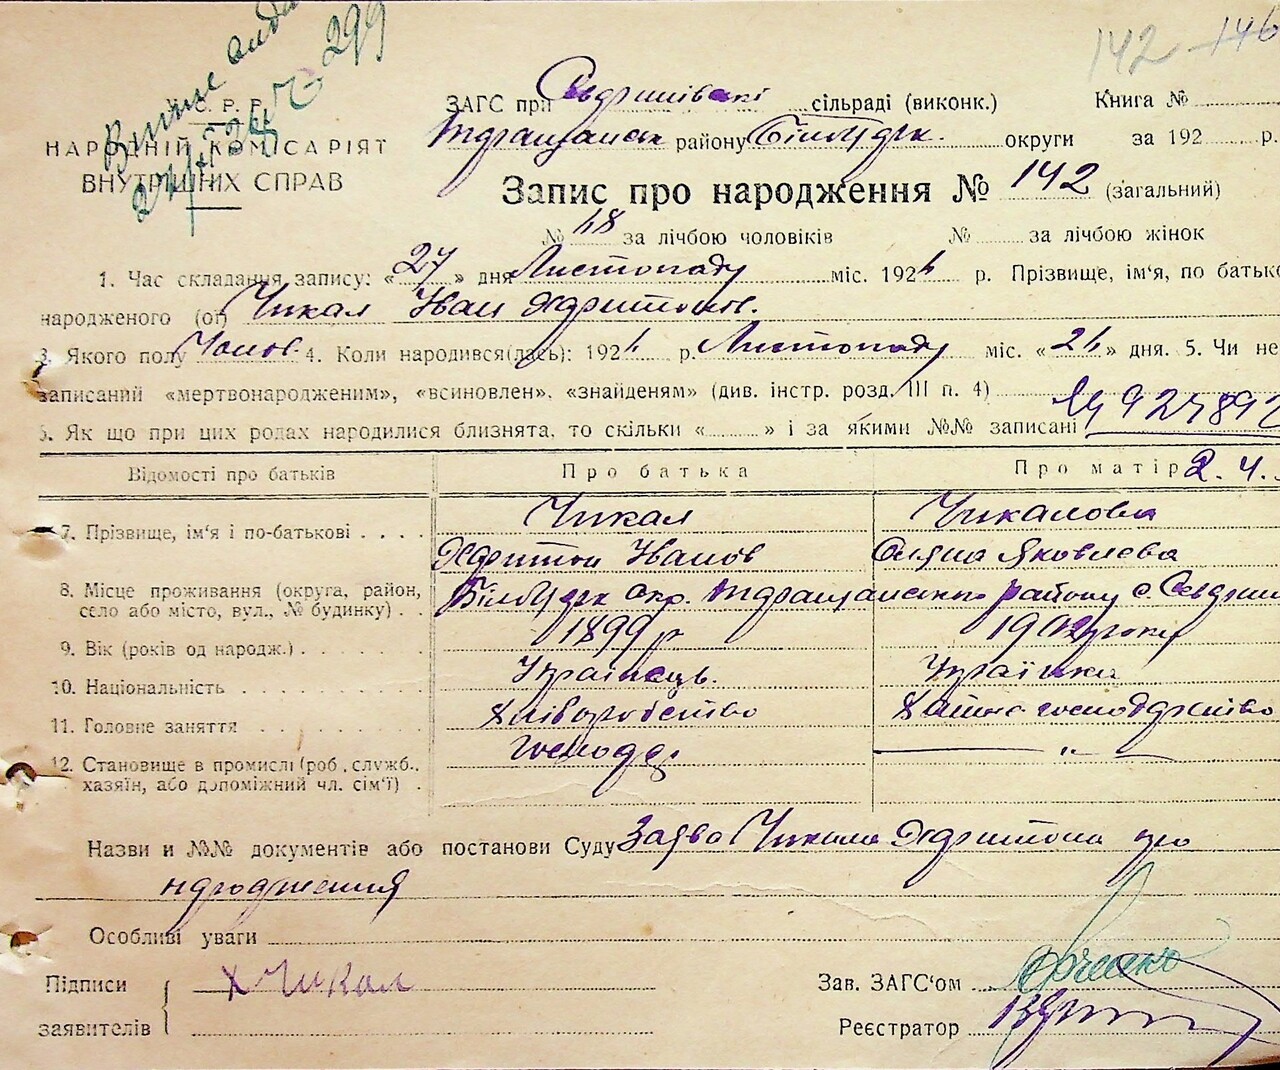 142 146
У. С. Р. Р.
НАРОДНІЙ КОМІСАРІЯТ
ВНУТРІШНІХ СПРАВ
ЗАГС при сільраді (виконк.) Книга №
району округи за 192 р.
Запис про народження № 142 (загальний)
№ за лічбою чоловіків № за лічбою жінок
1. Час складання запису: «27» дня Листопаду міс. 192 р. Прізвище, ім'я, по батько
народженого (ої) Чикал Иван Харитонів.
3. Якого полу Чолов. 4. Коли народився(лась): 192 р. Листопаду міс. «24» дня. 5. Чи не
записаний «мертвонародженим», «всиновлен», «знайденям» (див. інстр. розд. III п. 4)
6. Як що при цих родах народилися близнята, то скільки « » і за якими №№ записані
Відомості про батьків Про батька Про матір
7. Прізвище, ім'я і по-батькові Чикал Чикалова
Харитон Иванов Яковлева
8. Місце проживання (округа, район,
село або місто, вул., № будинку) Білоцерк окр. району с
9. Вік (років од народж.) 1899 р 1902 року
10. Національність Українець. Українка
11. Головне заняття Хліборобство Хатнє господарство
12. Становище в промислі (роб., служб.,
хазяїн, або допоміжний чл. сім'ї) Господар — " —
Назви и №№ документів або постанови Суду Заява Чикала Харитона про
народження
Особливі уваги
Підписи Х Чикал Зав. ЗАГС'ом
заявителів Реєстратор